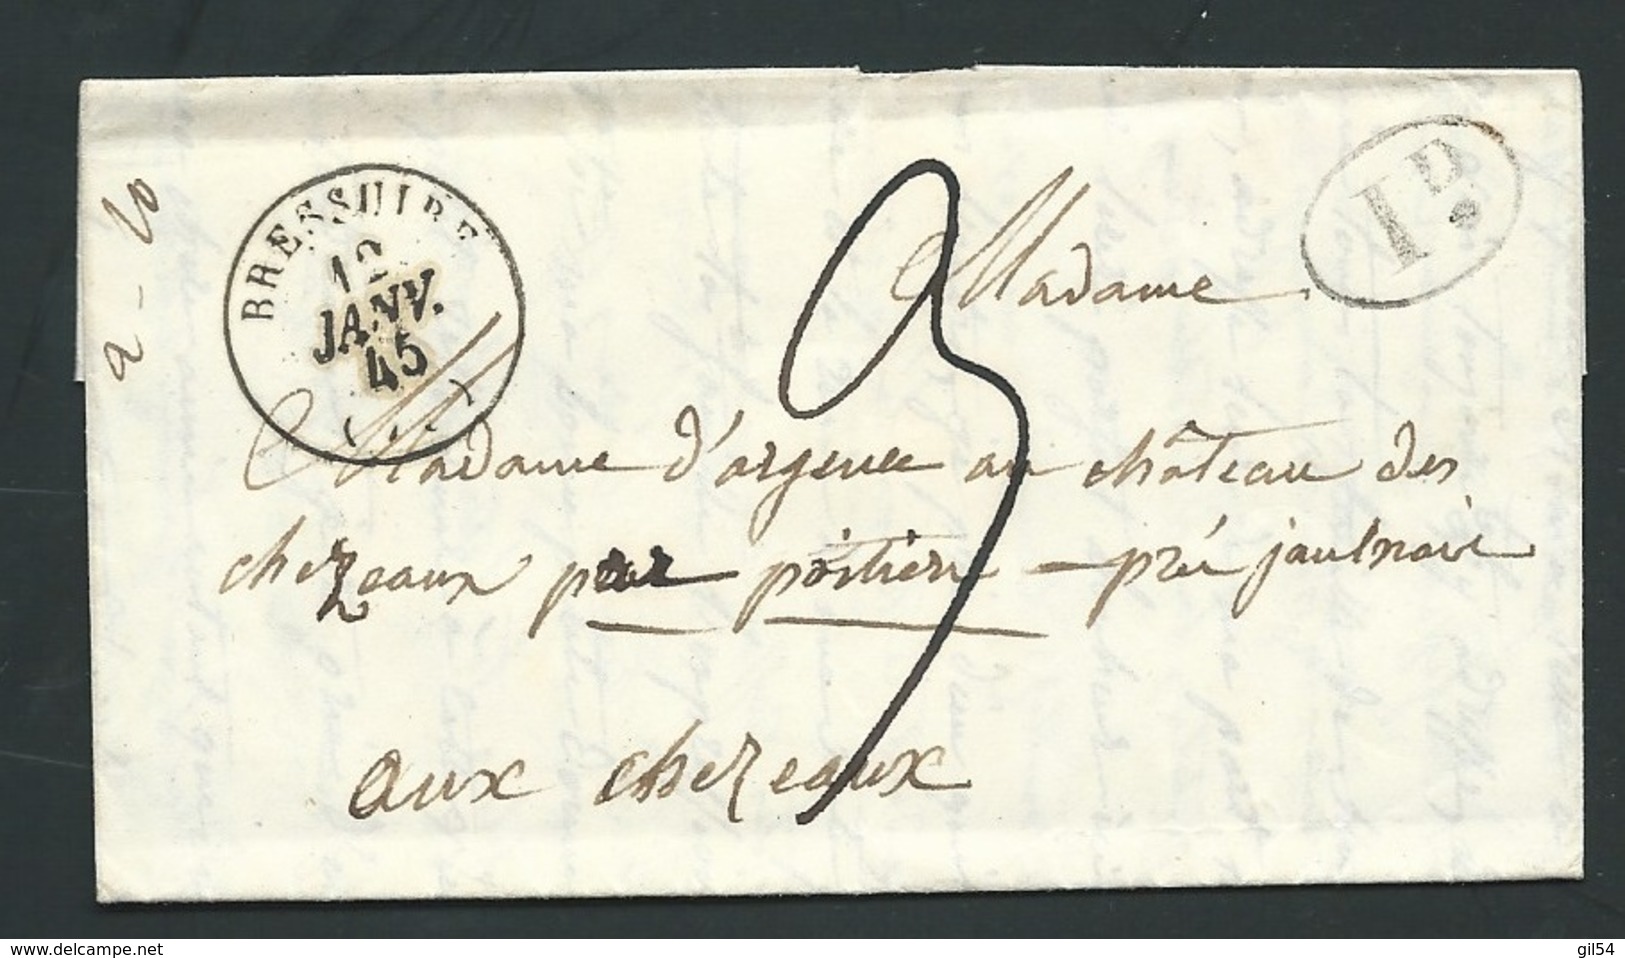 a - 10
BRESSUIRE
12
JANV.
45
1D.
3
Madame
Madame d'argence au château des
chezeaux par poitiers - près jaulnais
aux chezeaux
www.delcampe.net
gil54